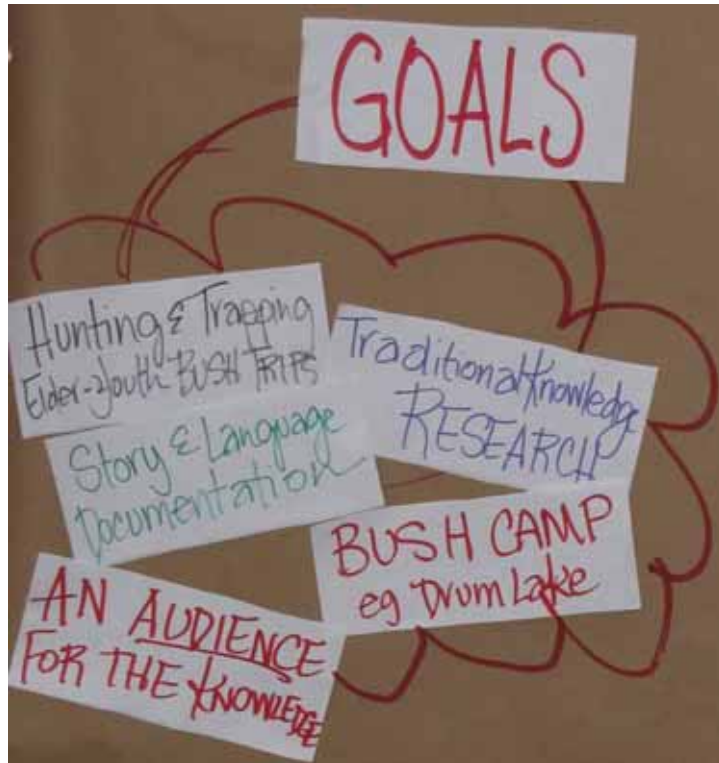 GOALS
Hunting & Trapping
Elder-Youth BUSH TRIPS
Traditional Knowledge
RESEARCH
Story & Language
Documentation
BUSH CAMP
eg Drum Lake
AN AUDIENCE
FOR THE KNOWLEDGE